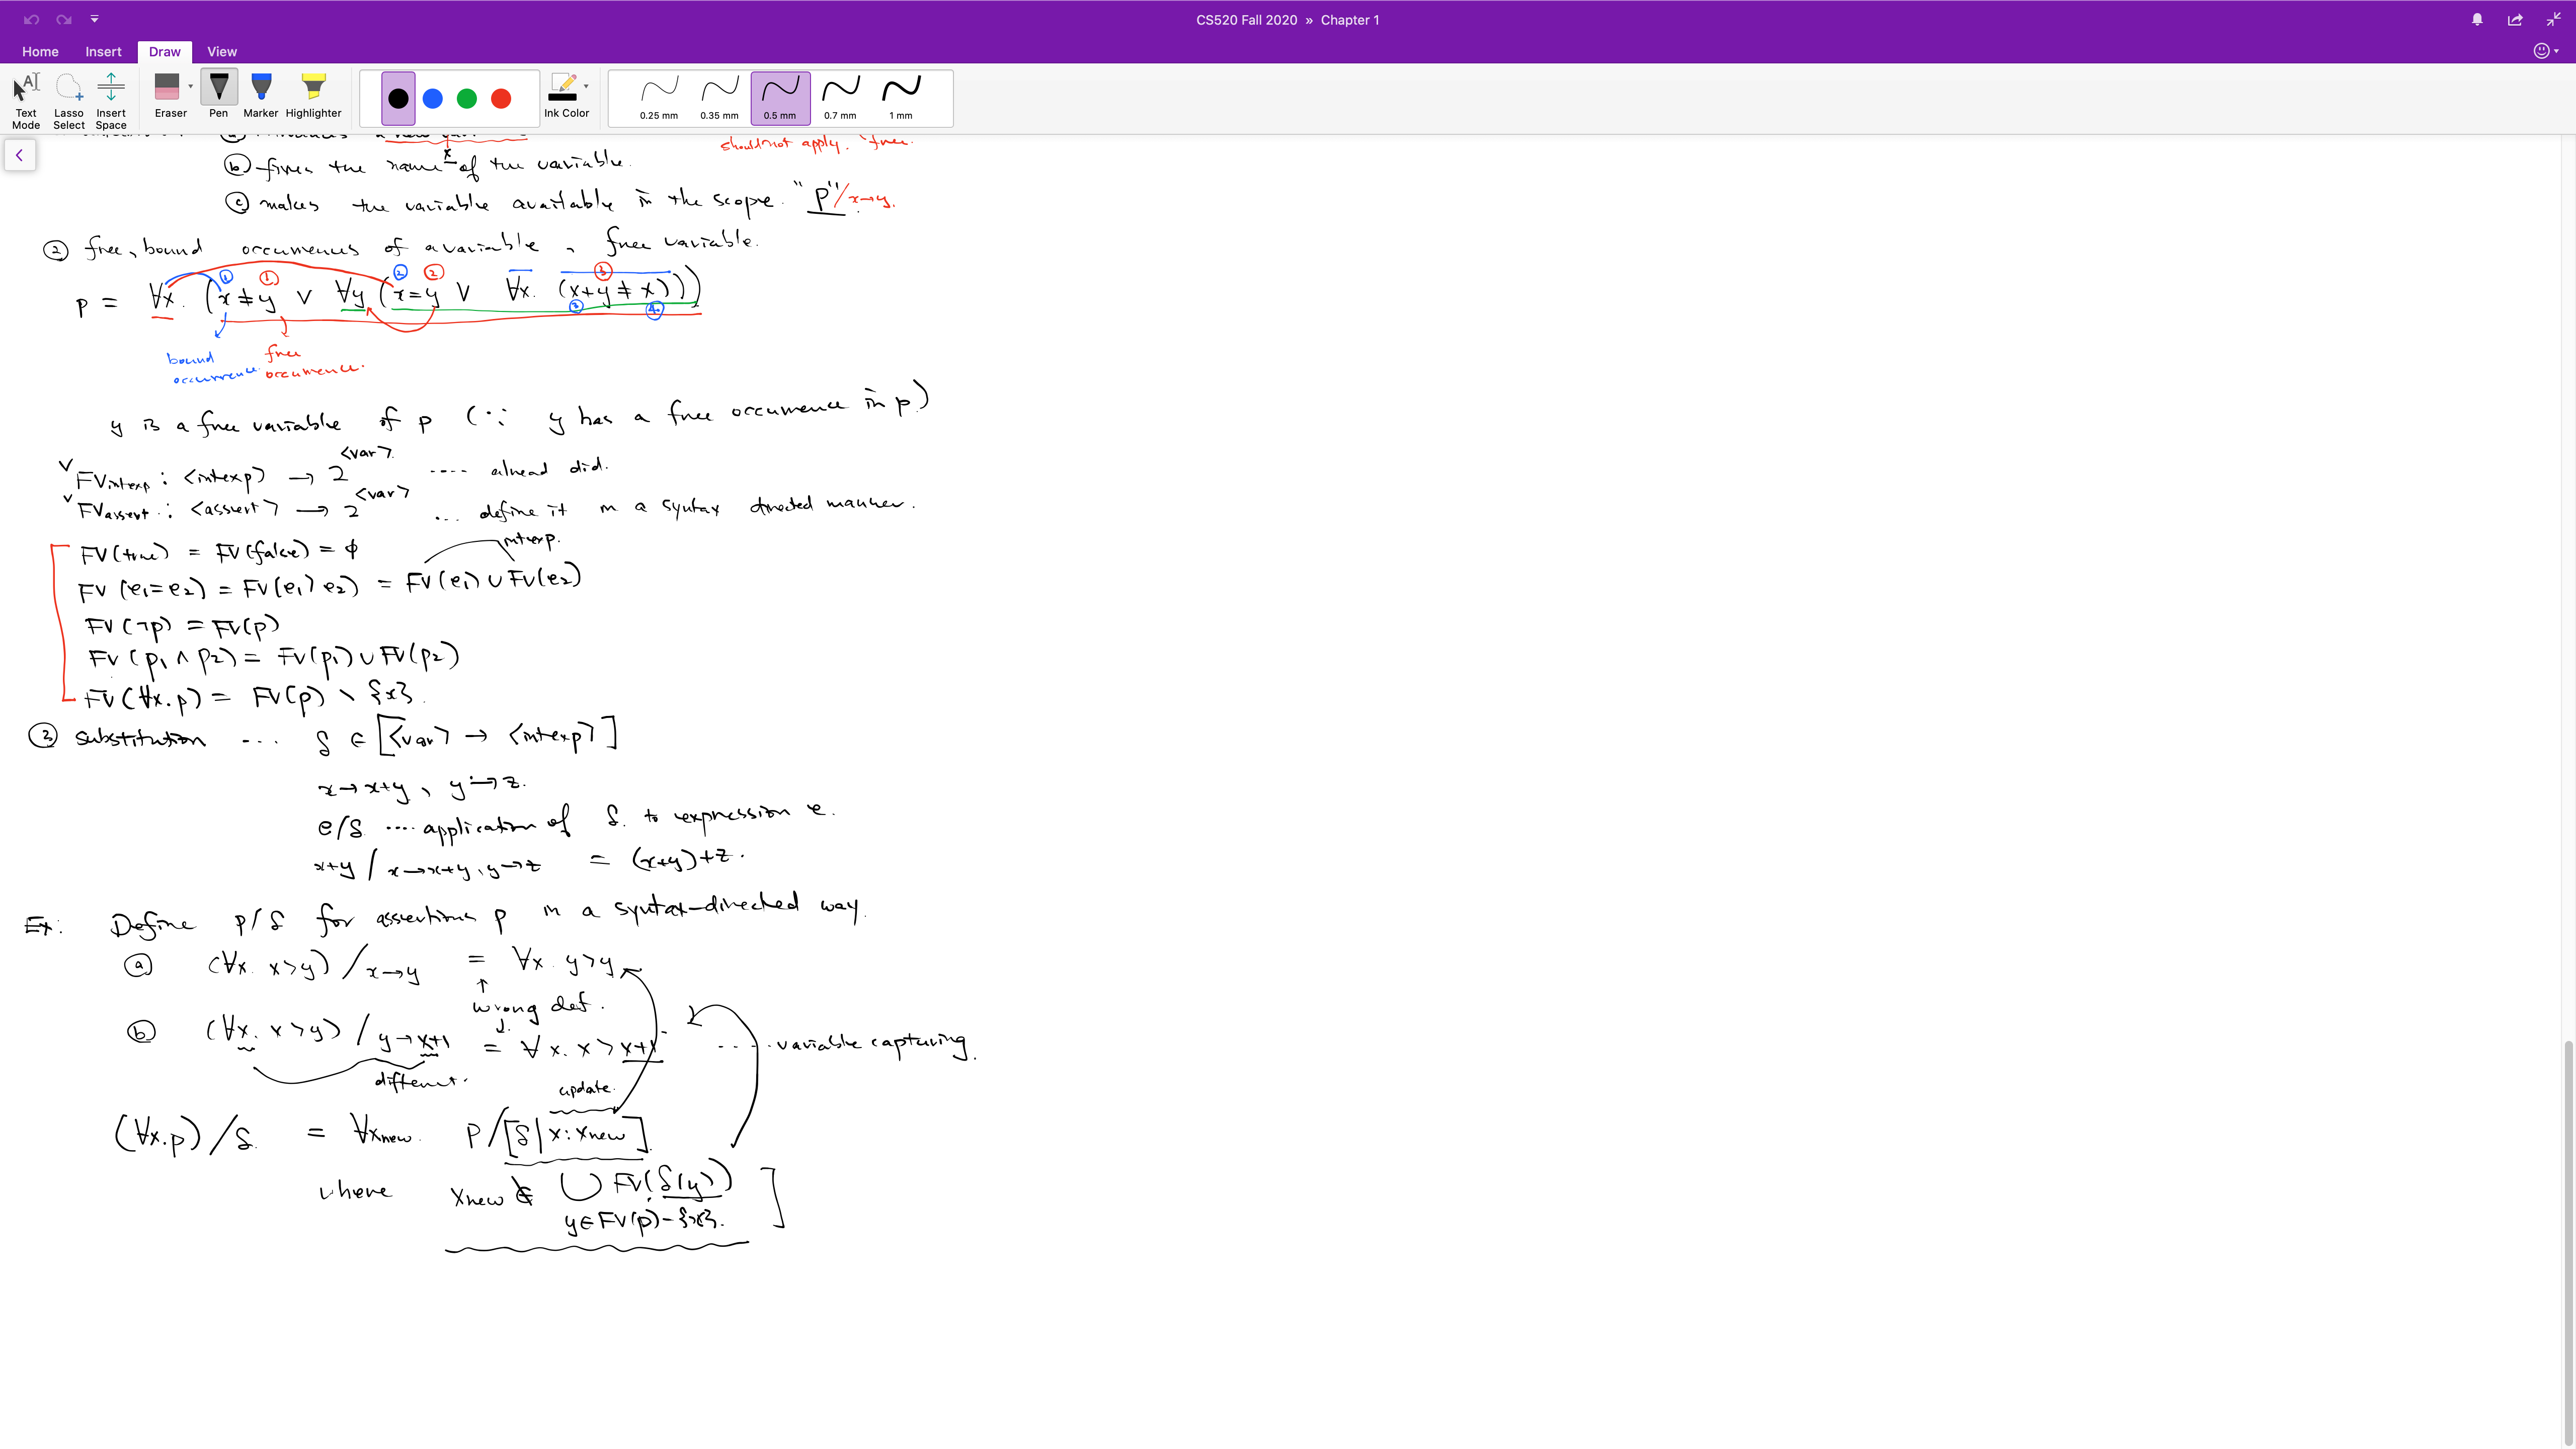 CS520 Fall 2020 » Chapter 1
Home Insert Draw View
Text Mode
Lasso Select
Insert Space
Eraser
Pen
Marker
Highlighter
Ink Color
0.25 mm
0.35 mm
0.5 mm
0.7 mm
1 mm
should not apply. free.
ⓑ fixes the name of the variable.
x
ⓒ makes the variable available in the scope. "P"/x→y.
② free, bound occurrences of a variable, free variable.
① ① ② ② ③
p = ∀x. (x≠y ∨ ∀y (x=y ∨ ∀x. (x+y≠x)))
③ ④
bound occurrence.
free occurrence.
y is a free variable of p (∵ y has a free occurrence in p.)
∨ FVintexp : <intexp> → 2^<var> .... alread did.
∨ FVassert : <assert> → 2^<var> ... define it in a syntax directed manner.
FV(true) = FV(false) = ϕ
intexp.
FV(e1=e2) = FV(e1>e2) = FV(e1) ∪ FV(e2)
FV(¬p) = FV(p)
FV(p1∧p2) = FV(p1) ∪ FV(p2)
FV(∀x.p) = FV(p) \ {x}.
③ substitution ... δ ∈ [<var> → <intexp>]
x→x+y, y→z.
e/δ .... application of δ. to expression e.
x+y / x→x+y, y→z = (x+y)+z.
Ex: Define p/δ for assertions p in a syntax-directed way.
ⓐ (∀x. x>y) / x→y = ∀x. y>y
↑
wrong def.
↓
ⓑ (∀x. x>y) / y→x+1 = ∀x. x>x+1 .... variable capturing.
different.
update.
(∀x.p)/δ. = ∀xnew. p/[δ|x:xnew].
where xnew ∉ ∪ FV(δ(y))
y∈FV(p)-{x}.